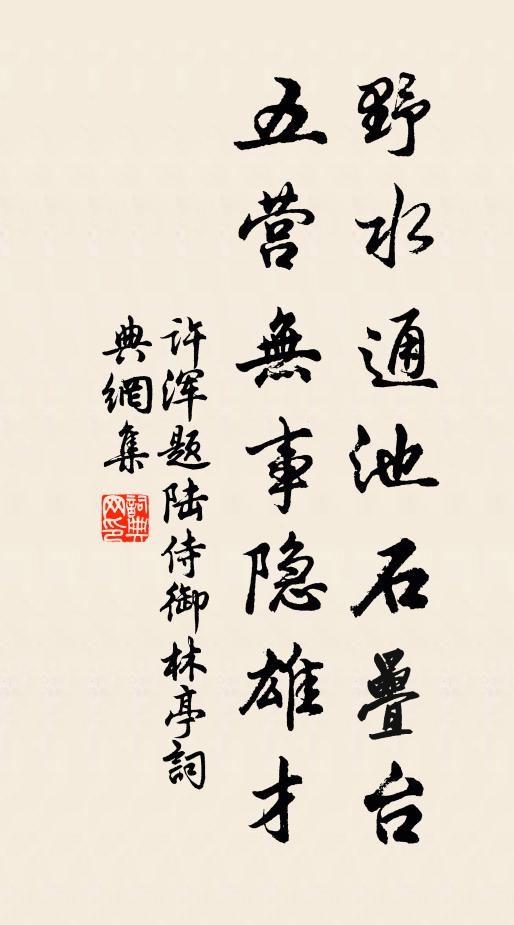 野水通池石疊台
五营無事隐雄才
许浑题陆侍御林亭詞
典網集
詞典网印